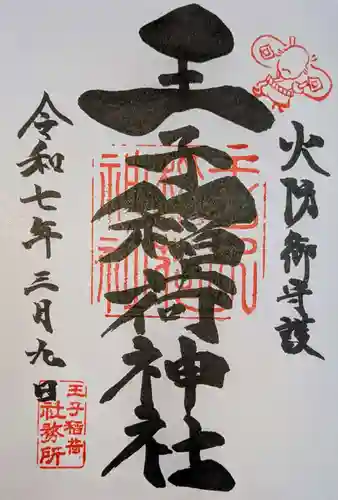 火防御守護
王子稲荷神社
令和七年三月九日
王子稲荷
社務所